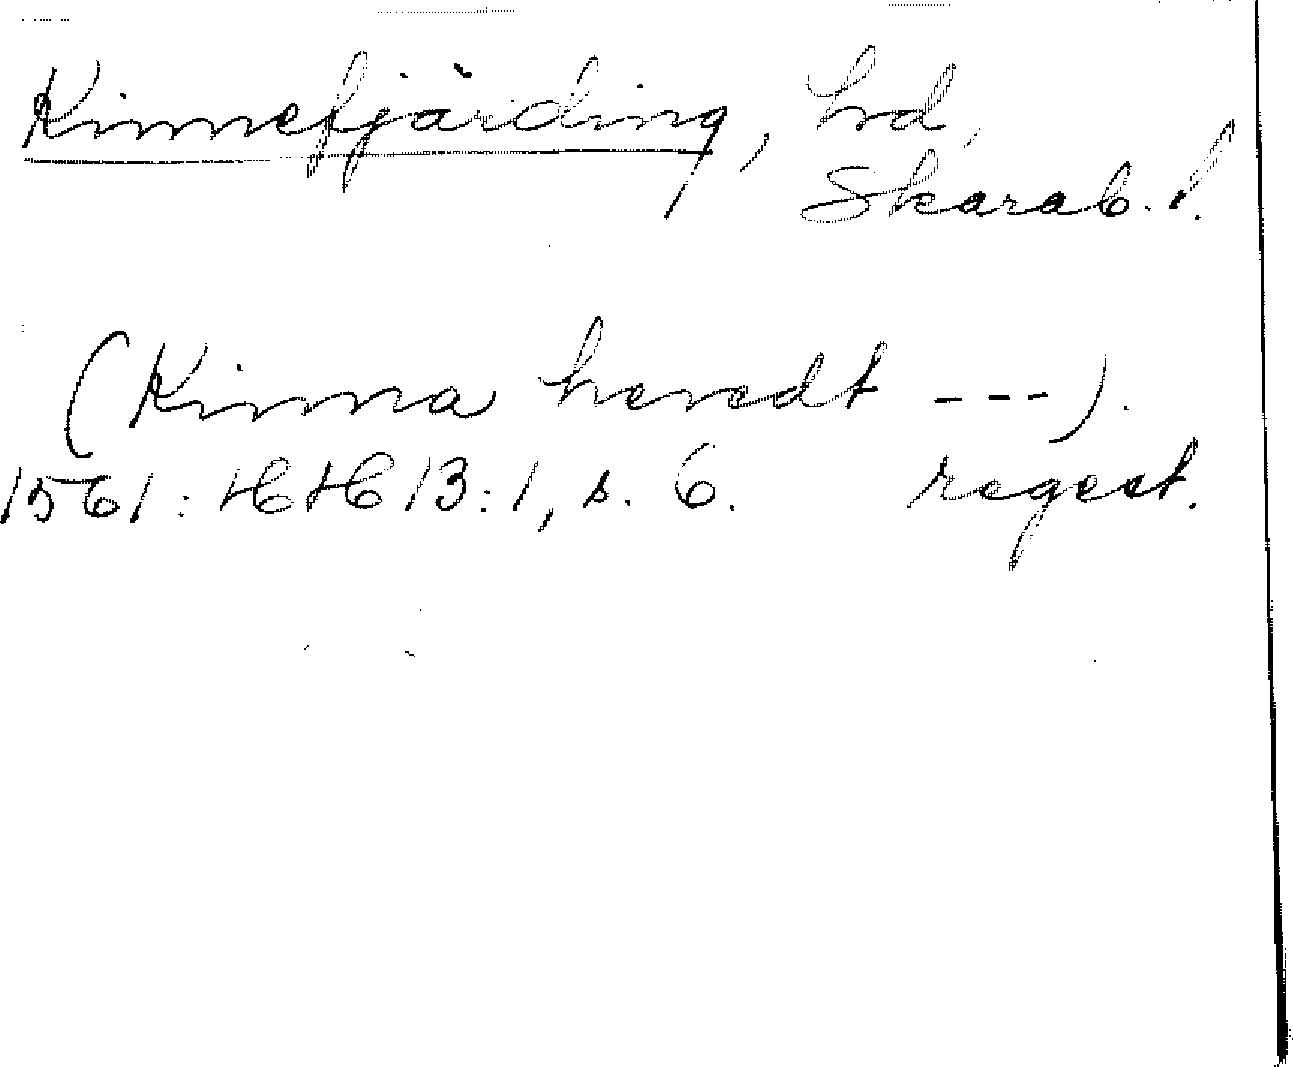 Kinnefjärding, hd,
Skarab. l.
(Kinna heredt ---).
1561: HH 13:1, s. 6. regest.